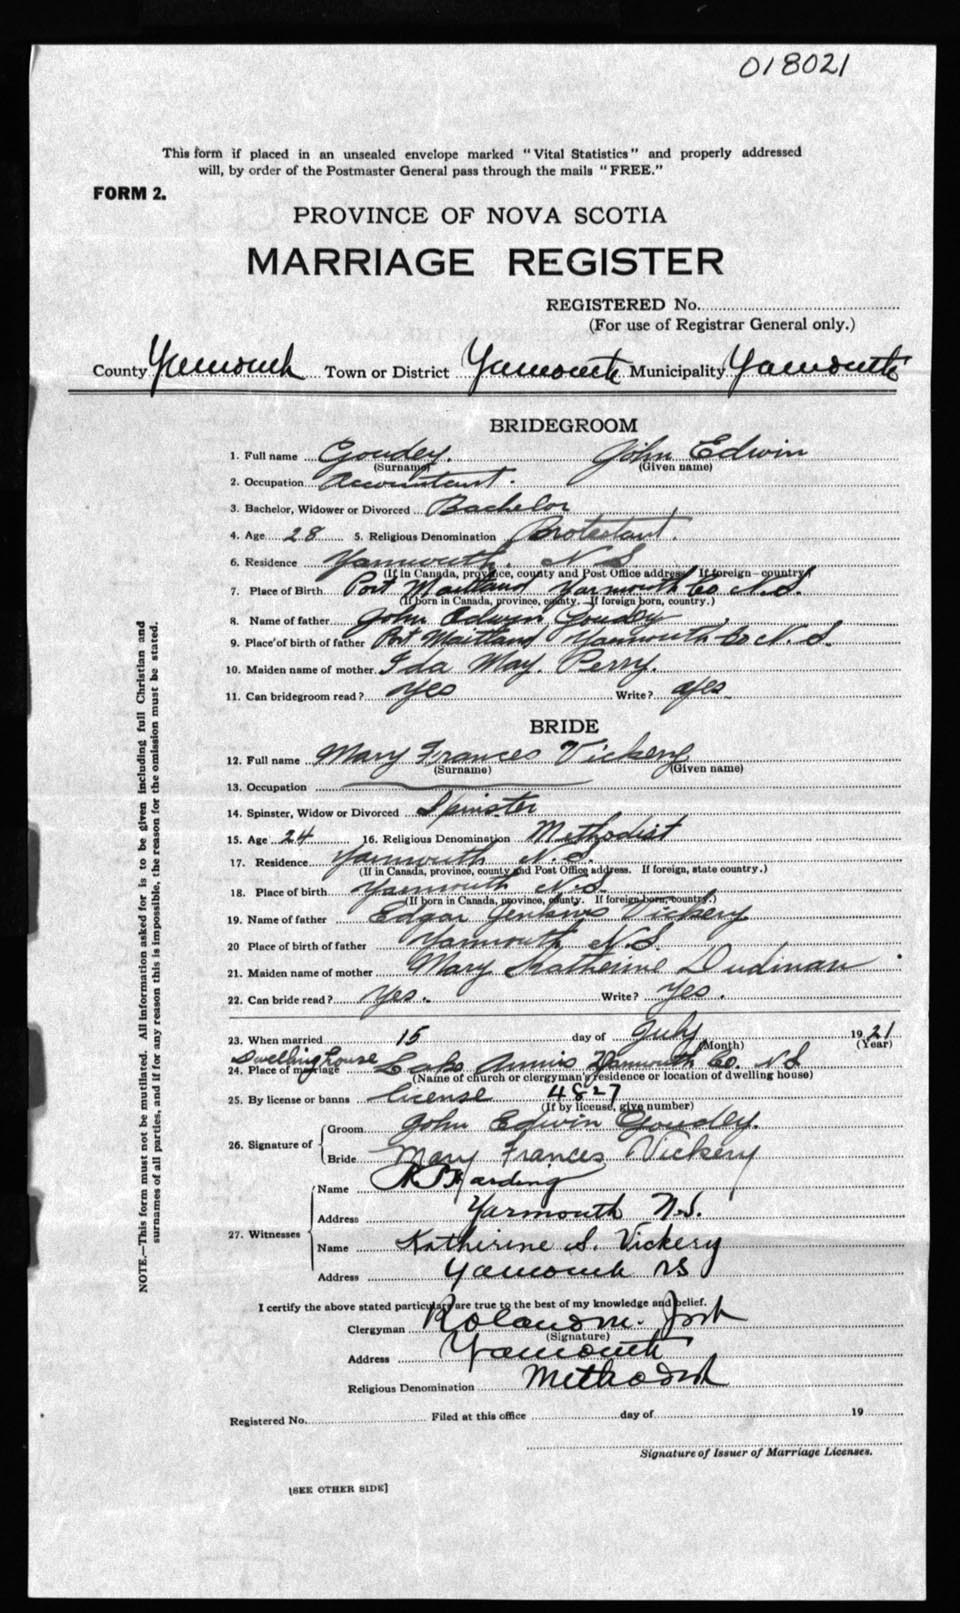 018021
This form if placed in an unsealed envelope marked "Vital Statistics" and properly addressed
will, by order of the Postmaster General pass through the mails "FREE."
FORM 2.
PROVINCE OF NOVA SCOTIA
MARRIAGE REGISTER
REGISTERED No.
(For use of Registrar General only.)
County Yarmouth Town or District Yarmouth Municipality Yarmouth
BRIDEGROOM
1. Full name Goudey. John Edwin
(Surname) (Given name)
2. Occupation Accountant.
3. Bachelor, Widower or Divorced Bachelor
4. Age 28 5. Religious Denomination Protestant.
6. Residence Yarmouth. N S
(If in Canada, province, county and Post Office address. If foreign country)
7. Place of Birth Port Maitland Yarmouth Co N.S.
(If born in Canada, province, county. If foreign born, country.)
8. Name of father John Edwin Goudey
9. Place of birth of father Port Maitland Yarmouth Co N.S.
10. Maiden name of mother Ida May. Perry.
11. Can bridegroom read? Yes Write? Yes
BRIDE
12. Full name Mary Frances Vickery
(Surname) (Given name)
13. Occupation
14. Spinster, Widow or Divorced Spinster
15. Age 24 16. Religious Denomination Methodist
17. Residence Yarmouth N.S.
(If in Canada, province, county and Post Office address. If foreign, state country.)
18. Place of birth Yarmouth N.S.
(If born in Canada, province, county. If foreign born, country.)
19. Name of father Edgar Jenkins Vickery
20 Place of birth of father Yarmouth, N.S.
21. Maiden name of mother Mary Katherine Dudman
22. Can bride read? Yes. Write? Yes.
23. When married 15 day of July 1921
(Month) (Year)
Dwelling house
24. Place of marriage Yarmouth Co. N S
(Name of church or clergyman's residence or location of dwelling house)
25. By license or banns License 4827
(If by license, give number)
26. Signature of Groom John Edwin Goudey.
Bride Mary Frances Vickery
27. Witnesses
Name Harding
Address Yarmouth N.S.
Name Katherine S. Vickery
Address Yarmouth NS
I certify the above stated particulars are true to the best of my knowledge and belief.
Clergyman Roland M.
(Signature)
Address Yarmouth
Religious Denomination Methodist
Registered No. Filed at this office day of 19
Signature of Issuer of Marriage Licenses.
[SEE OTHER SIDE]
NOTE.—This form must not be mutilated. All information asked for is to be given including full Christian and
surnames of all parties, and if for any reason this is impossible, the reason for the omission must be stated.